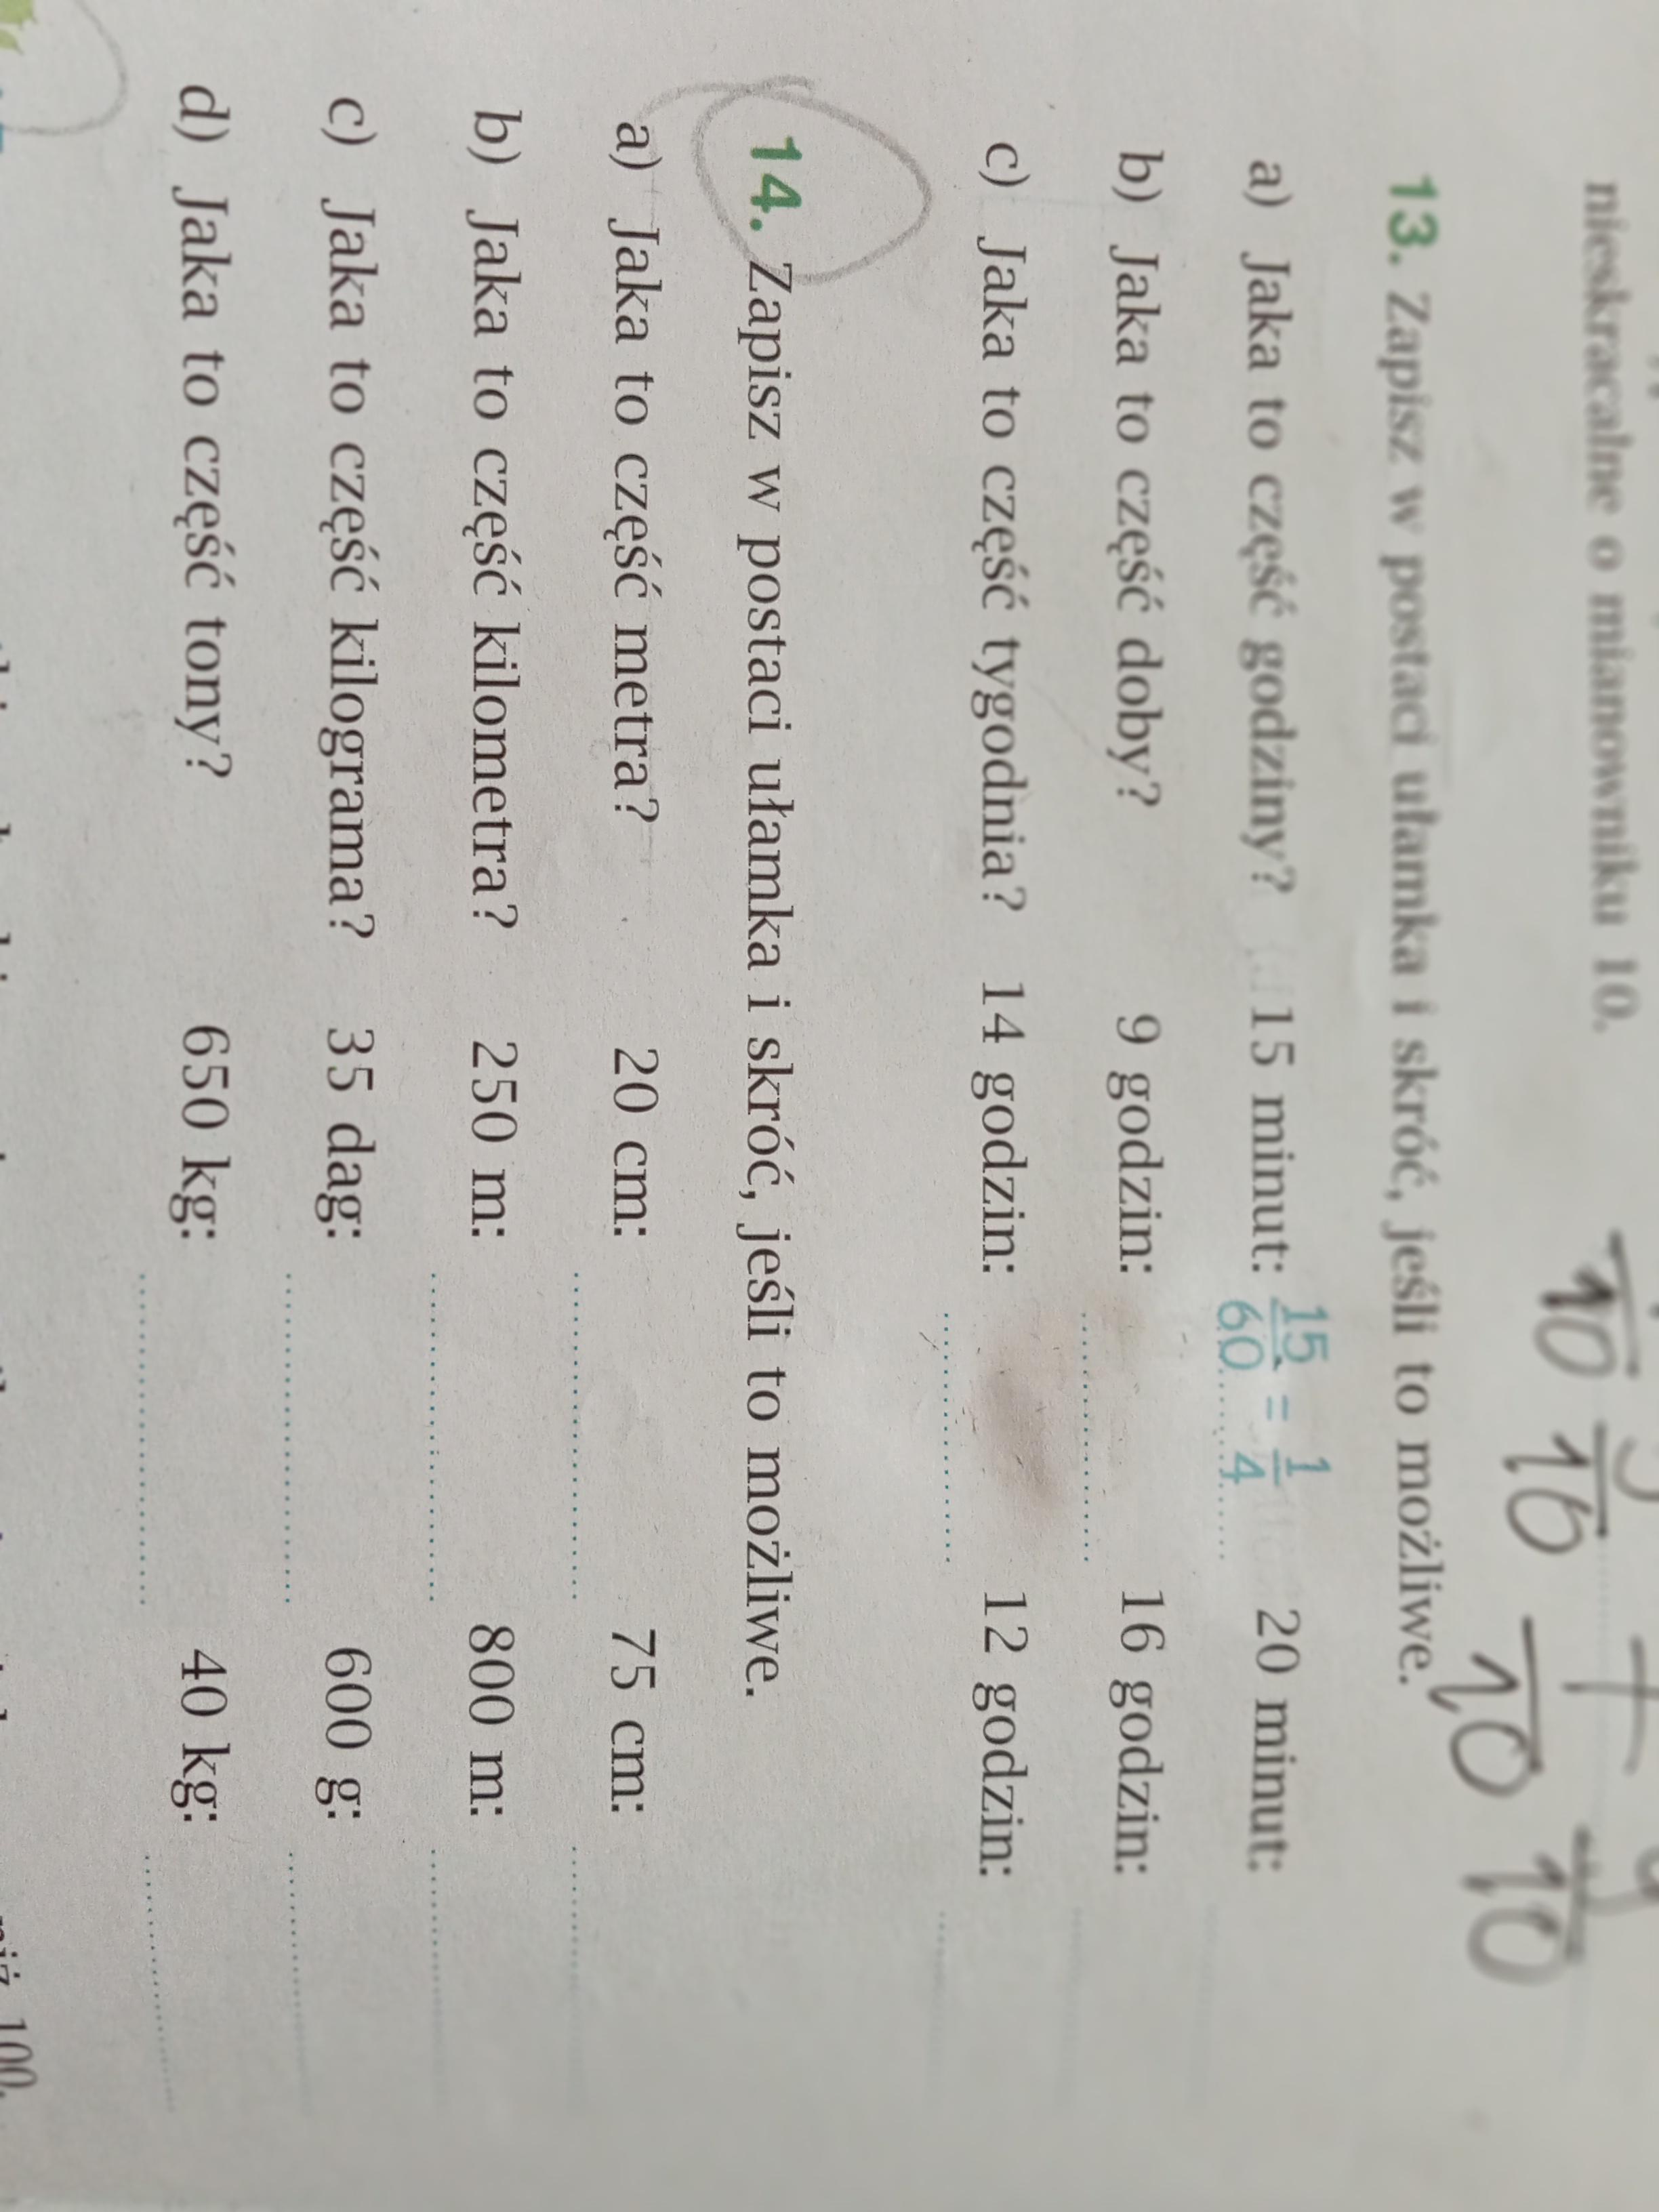 nieskracalne o mianowniku 10.
10 10 10 10
13. Zapisz w postaci ułamka i skróć, jeśli to możliwe.
a) Jaka to część godziny? 15 minut: 15/60 = 1/4 20 minut:
b) Jaka to część doby? 9 godzin: 16 godzin:
c) Jaka to część tygodnia? 14 godzin: 12 godzin:
14. Zapisz w postaci ułamka i skróć, jeśli to możliwe.
a) Jaka to część metra? 20 cm: 75 cm:
b) Jaka to część kilometra? 250 m: 800 m:
c) Jaka to część kilograma? 35 dag: 600 g:
d) Jaka to część tony? 650 kg: 40 kg:
niż 100.